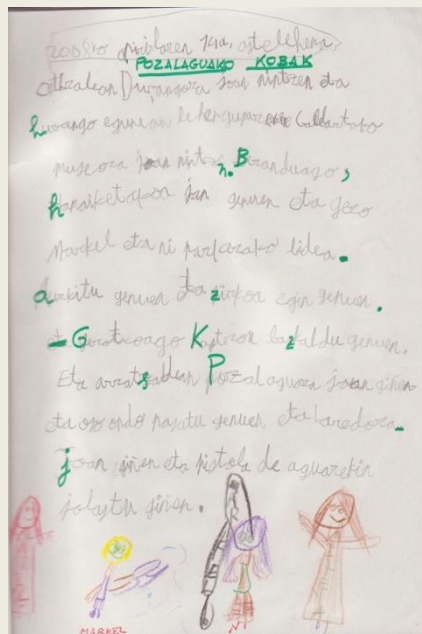 2008ko apirilaren 14a, astelehena.
POZALAGUAKO KOBAK
Durangora joan nintzen eta
hurrengo egunean lehengusuarekin Gallartako
museora joan nintzen. Beranduago,
hamaiketakoa jan genuen eta gero
Markel eta ni parkerako bidea.
aurkitu genuen eta zirkoa egin genuen.
- Geroxeago bazkaldu genuen.
Eta arratsaldean Pozalaguara joan giñen
eta oso ondo pasatu genuen eta laredora.
joan giñen eta pistola de aguarekin
jolastu giñen.
MARKEL
NI